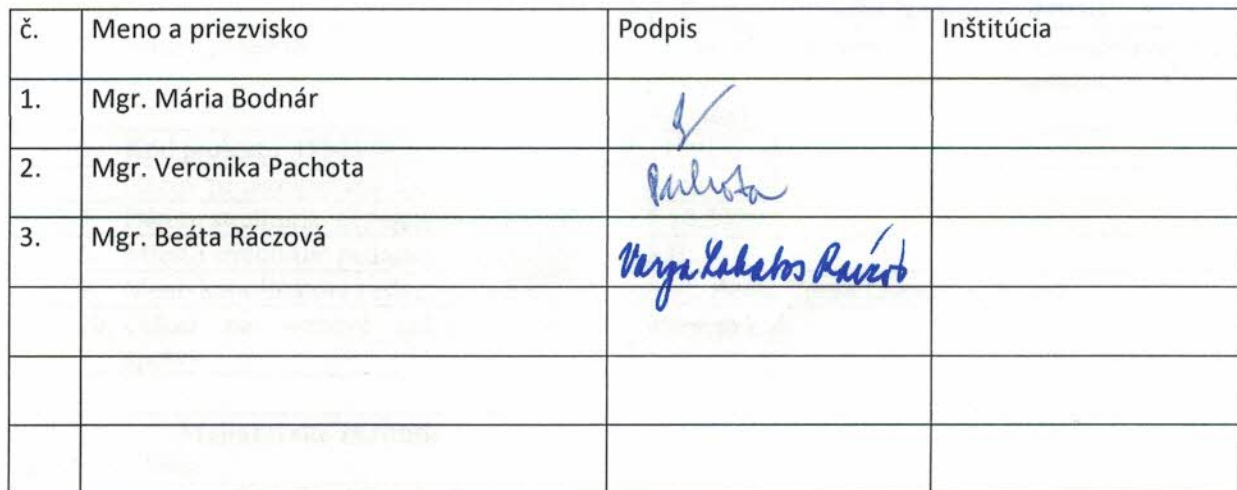 č. Meno a priezvisko Podpis Inštitúcia
1. Mgr. Mária Bodnár
2. Mgr. Veronika Pachota Pachota
3. Mgr. Beáta Ráczová Varga Lakatos